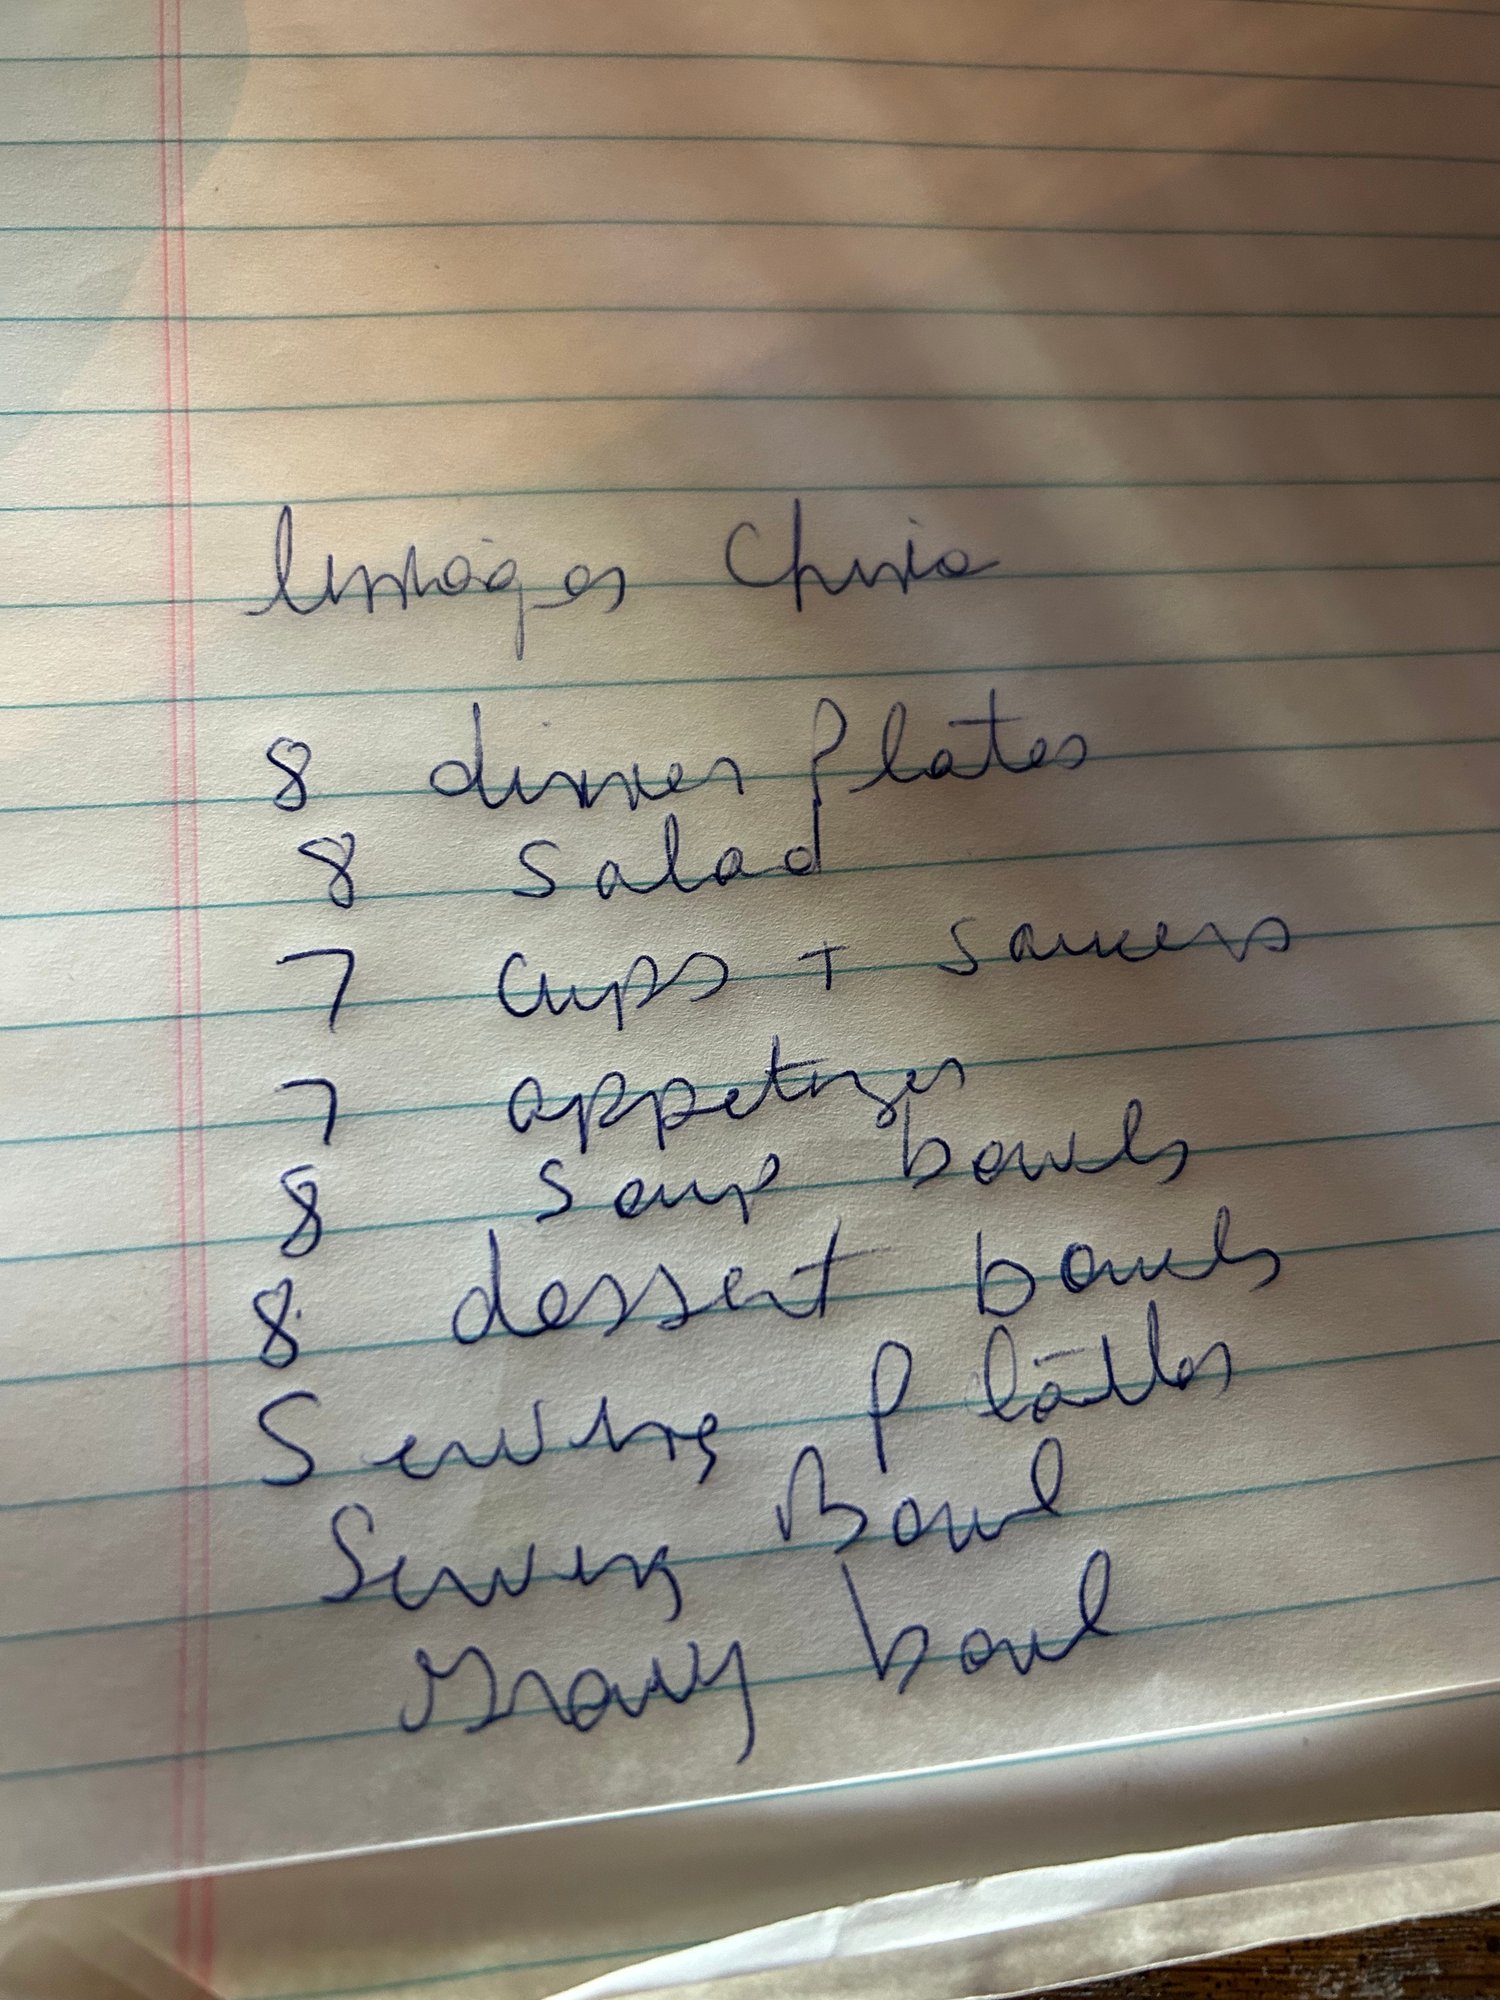 China
8 dinner plates
8 salad
7 cups + saucers
7 appetizer
8 soup bowls
8 dessert bowls
Serving
Serving Bowl
Gravy bowl